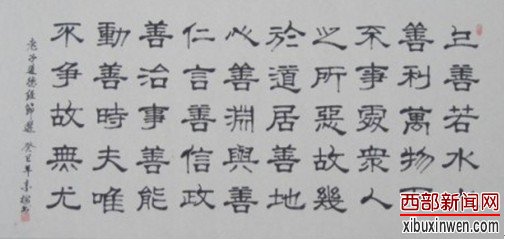 上善若水
善利萬物
不爭處眾人
之所惡故幾
於道居善地
心善淵與善
仁言善信政
善治事善能
動善時夫唯
不爭故無尤
老子道德經節選 癸巳年
西部新闻网
xibuxinwen.com